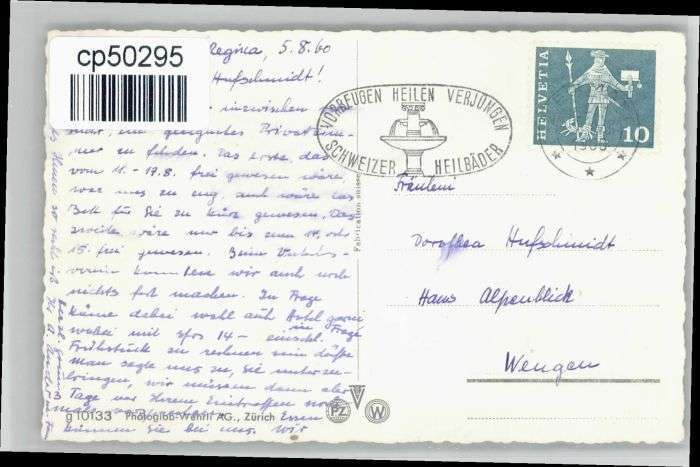 cp50295
Regina, 5.8.60
Hufschmidt!
inzwischen
ein geeignetes Privatzim-
mer zu finden. Das erste, das
vom 11. - 17.8. frei gewesen wäre,
war uns zu eng, auch wäre das
Bett für Sie zu kurz gewesen. Das
zweite wäre nur bis zum 14. od.
15. frei gewesen. Beim Verkehrs-
verein konnten wir auch noch
nichts fest machen. In Frage
käme dabei wohl auch Hotel garni
wobei mit sfrs 14 - einschl.
Frühstück zu rechnen sein dürfte
man sagte uns zu, Sie unterzu-
bringen, wir müssen dann aber
Tage vor Ihrem Eintreffen noch
Essen
können Sie bei uns. Wir
g 10133 Photoglob-Wehrli AG., Zürich
PZ W
Fabrication suisse
VORBEUGEN HEILEN VERJÜNGEN
SCHWEIZER HEILBÄDER
HELVETIA
10
Fräulein
Dorothea Hufschmidt
Haus Alpenblick
Wengen